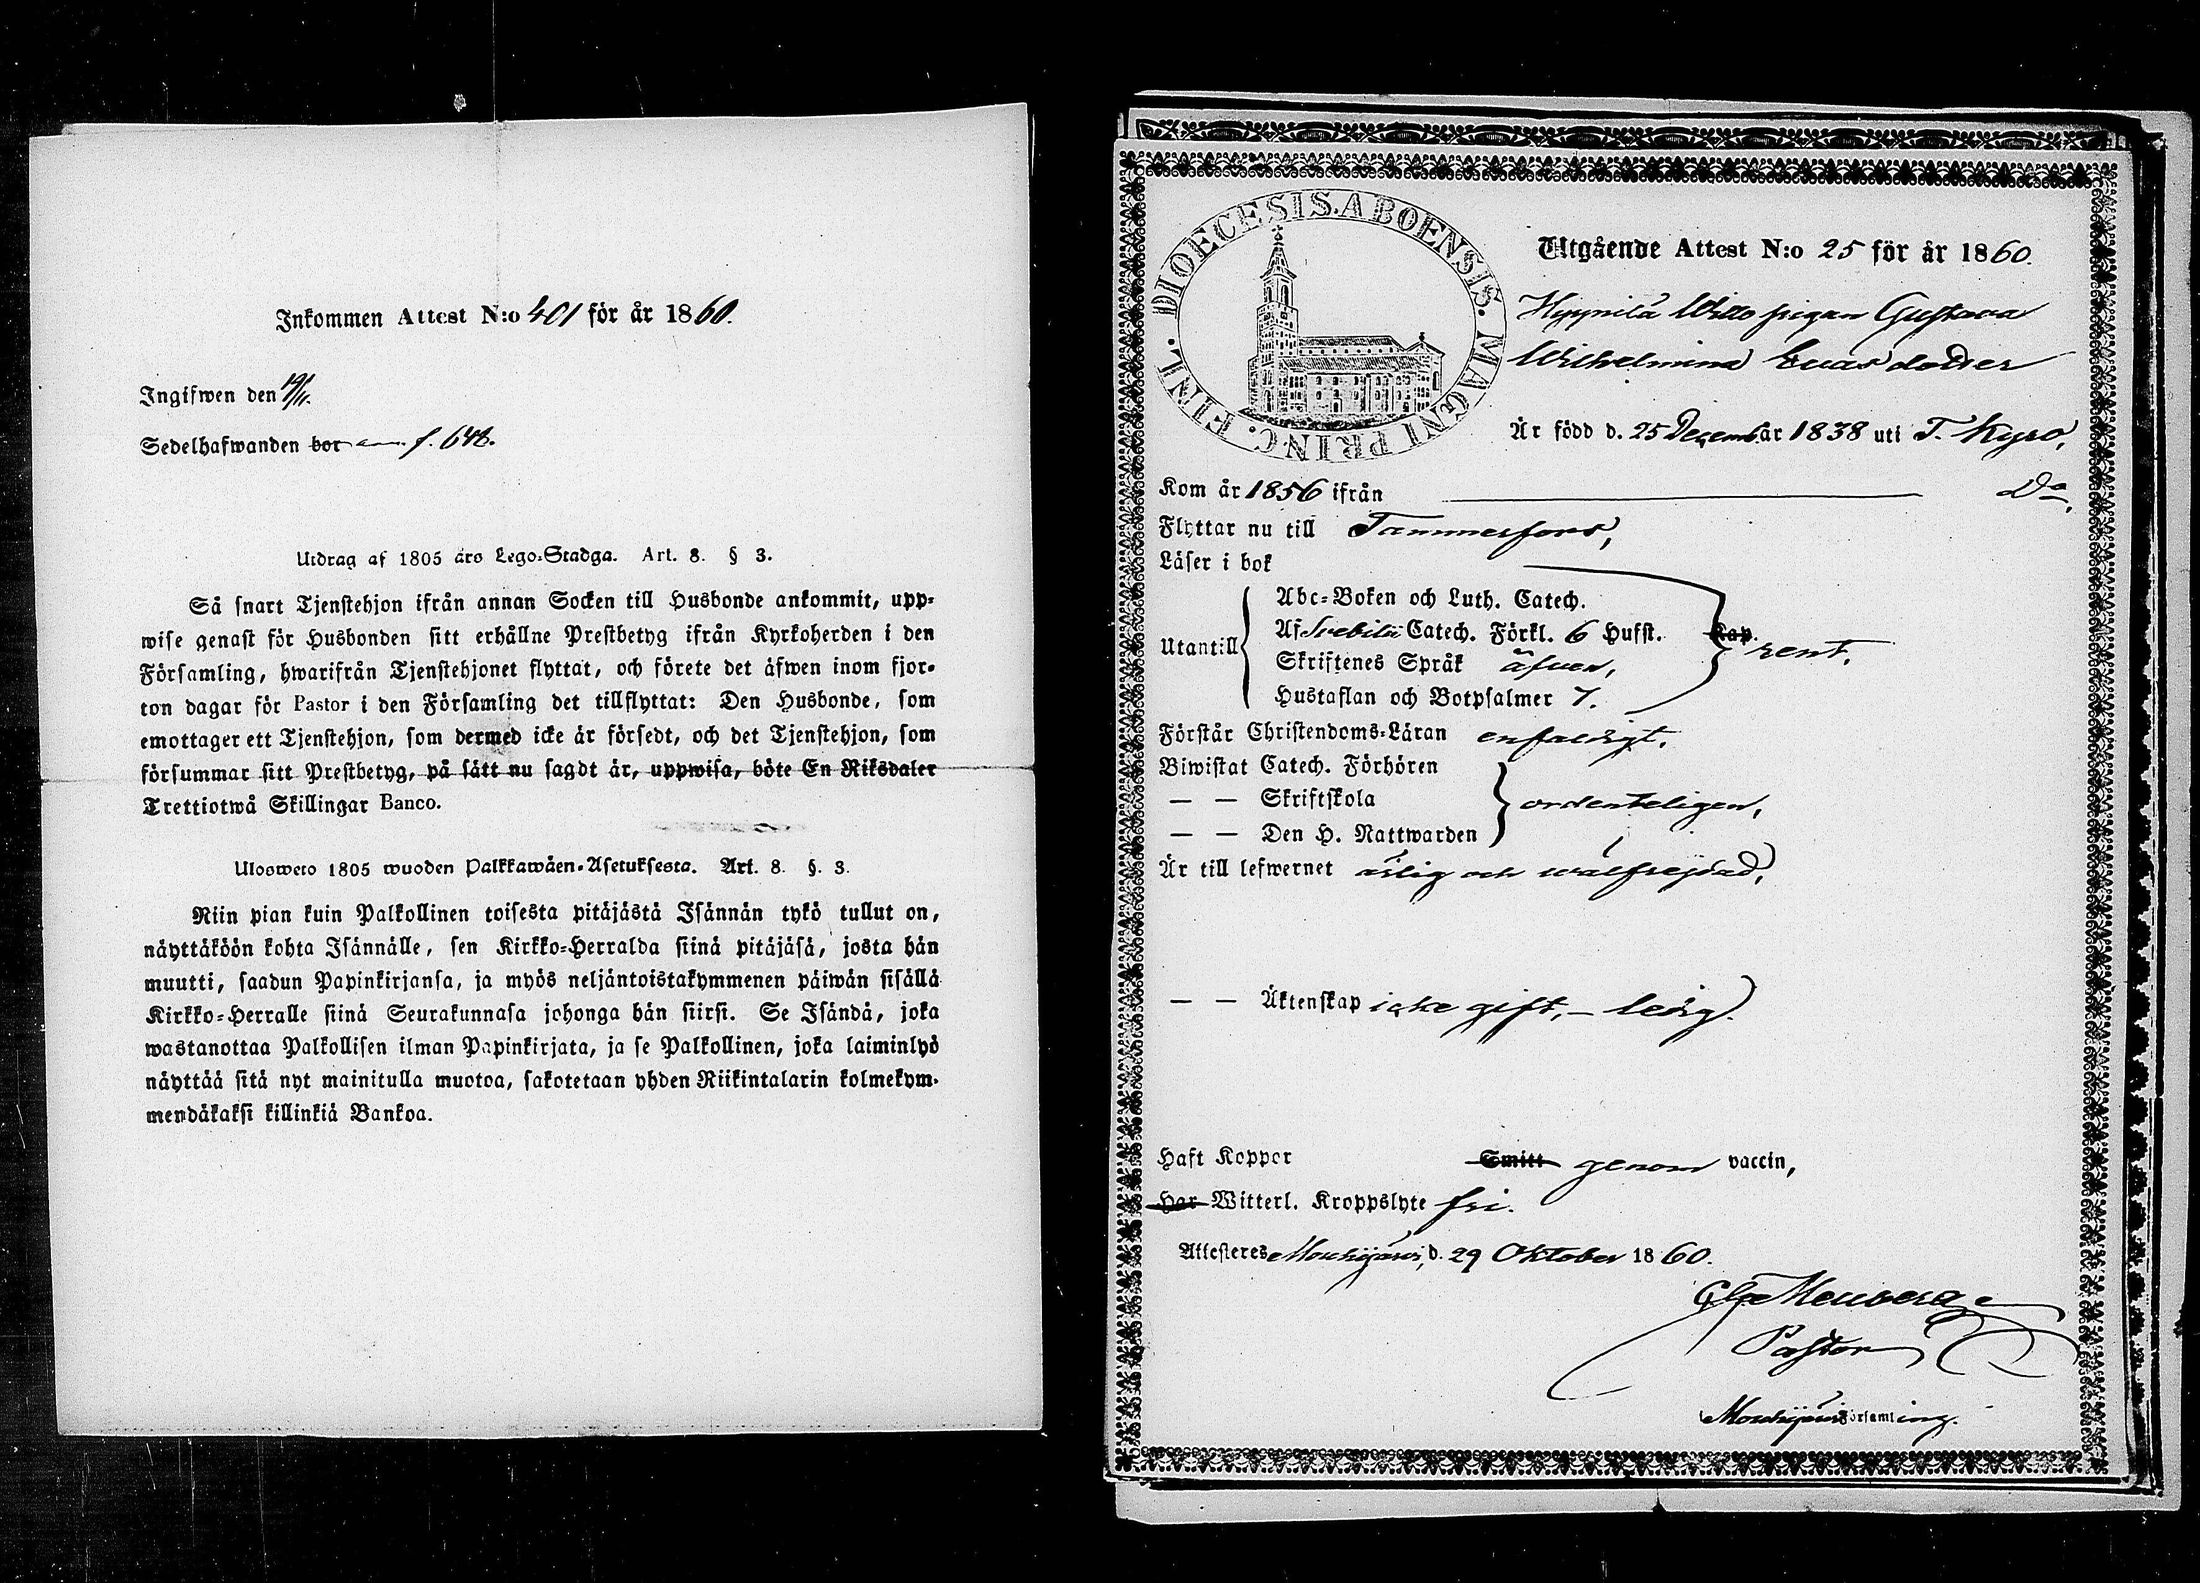 Inkommen Attest N:o 401 för år 1860.
Ingifwen den 19/11.
Sedelhafwanden bor f. 648.
Utdrag af 1805 års Lego-Stadga. Art. 8. § 3.
Så snart Tjenstehjon ifrån annan Socken till Husbonde ankommit, upp-
wise genast för Husbonden sitt erhållne Prestbetyg ifrån Kyrkoherden i den
Församling, hwarifrån Tjenstehjonet flyttat, och förete det äfwen inom fjor-
ton dagar för Pastor i den Församling det tillflyttat: Den Husbonde, som
emottager ett Tjenstehjon, som dermed icke är försedt, och det Tjenstehjon, som
försummar sitt Prestbetyg, på sätt nu sagdt är, uppwisa, böte En Riksdaler
Trettiotwå Skillingar Banco.
Ulosweto 1805 wuoden Palkkawäen-Asetuksesta. Art. 8. §. 3.
Niin pian kuin Palkollinen toisesta pitäjästä Isännän tykö tullut on,
näyttäköön kohta Isännälle, sen Kirkko-Herralda siinä pitäjäsä, josta hän
muutti, saadun Papinkirjansa, ja myös neljäntoistakymmenen päiwän sisällä
Kirkko-Herralle siinä Seurakunnasa johonga hän siirsi. Se Isändä, joka
wastanottaa Palkollisen ilman Papinkirjata, ja se Palkollinen, joka laiminlyö
näyttää sitä nyt mainitulla muotoa, sakotetaan yhden Riikintalarin kolmekym-
mendäkaksi killinkiä Bankoa.
DIOECESIS. ABOENSIS. MAGNI PRINC. FINL.
Utgående Attest N:o 25 för år 1860.
pigan Gustava
Wilhelmina Evasdotter
Är född d. 25 Decemb. år 1838 uti T. Kyro,
Kom år 1856 ifrån Do,
Flyttar nu till Tammerfors,
Läser i bok
Abc-Boken och Luth. Catech.
Utantill Af Svebilii Catech. Förkl. 6 Hufst. Kap. rent.
Skriftenes Språk äfven,
Hustaflan och Botpsalmer 7.
Förstår Christendoms-Läran enfaldigt.
Biwistat Catech. Förhören
— — Skriftskola ordenteligen,
— — Den H. Nattwarden
Är till lefwernet ärlig och wälfrejdad,
— — Äktenskap icke gift, – ledig.
Haft Koppor Smitt genom vaccin,
Har Witterl. Kroppslyte fri.
Attesteres Mouhijärvi, d. 29 Oktober 1860.
Pastor
Mouhijärvi Församling.